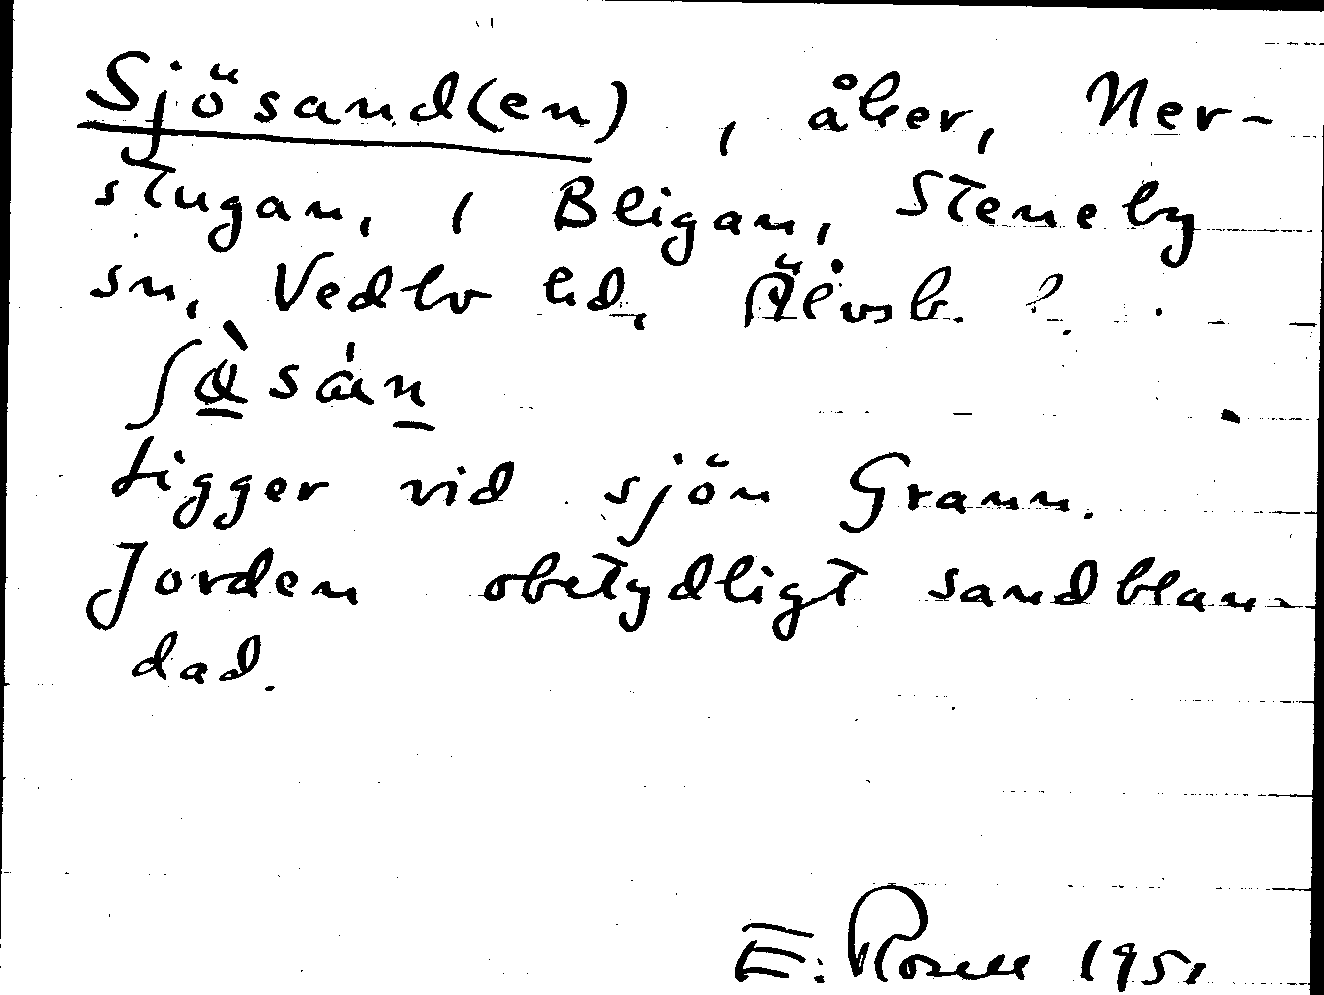 Sjösand(en), åker, Ner-
stugan, 1 Bligan, Steneby
sn, Vedbo hd, Älvsb. l.
ʃàsán
Ligger vid sjön Grann.
Jorden obetydligt sandblan-
dad.
E. Rosell 1951